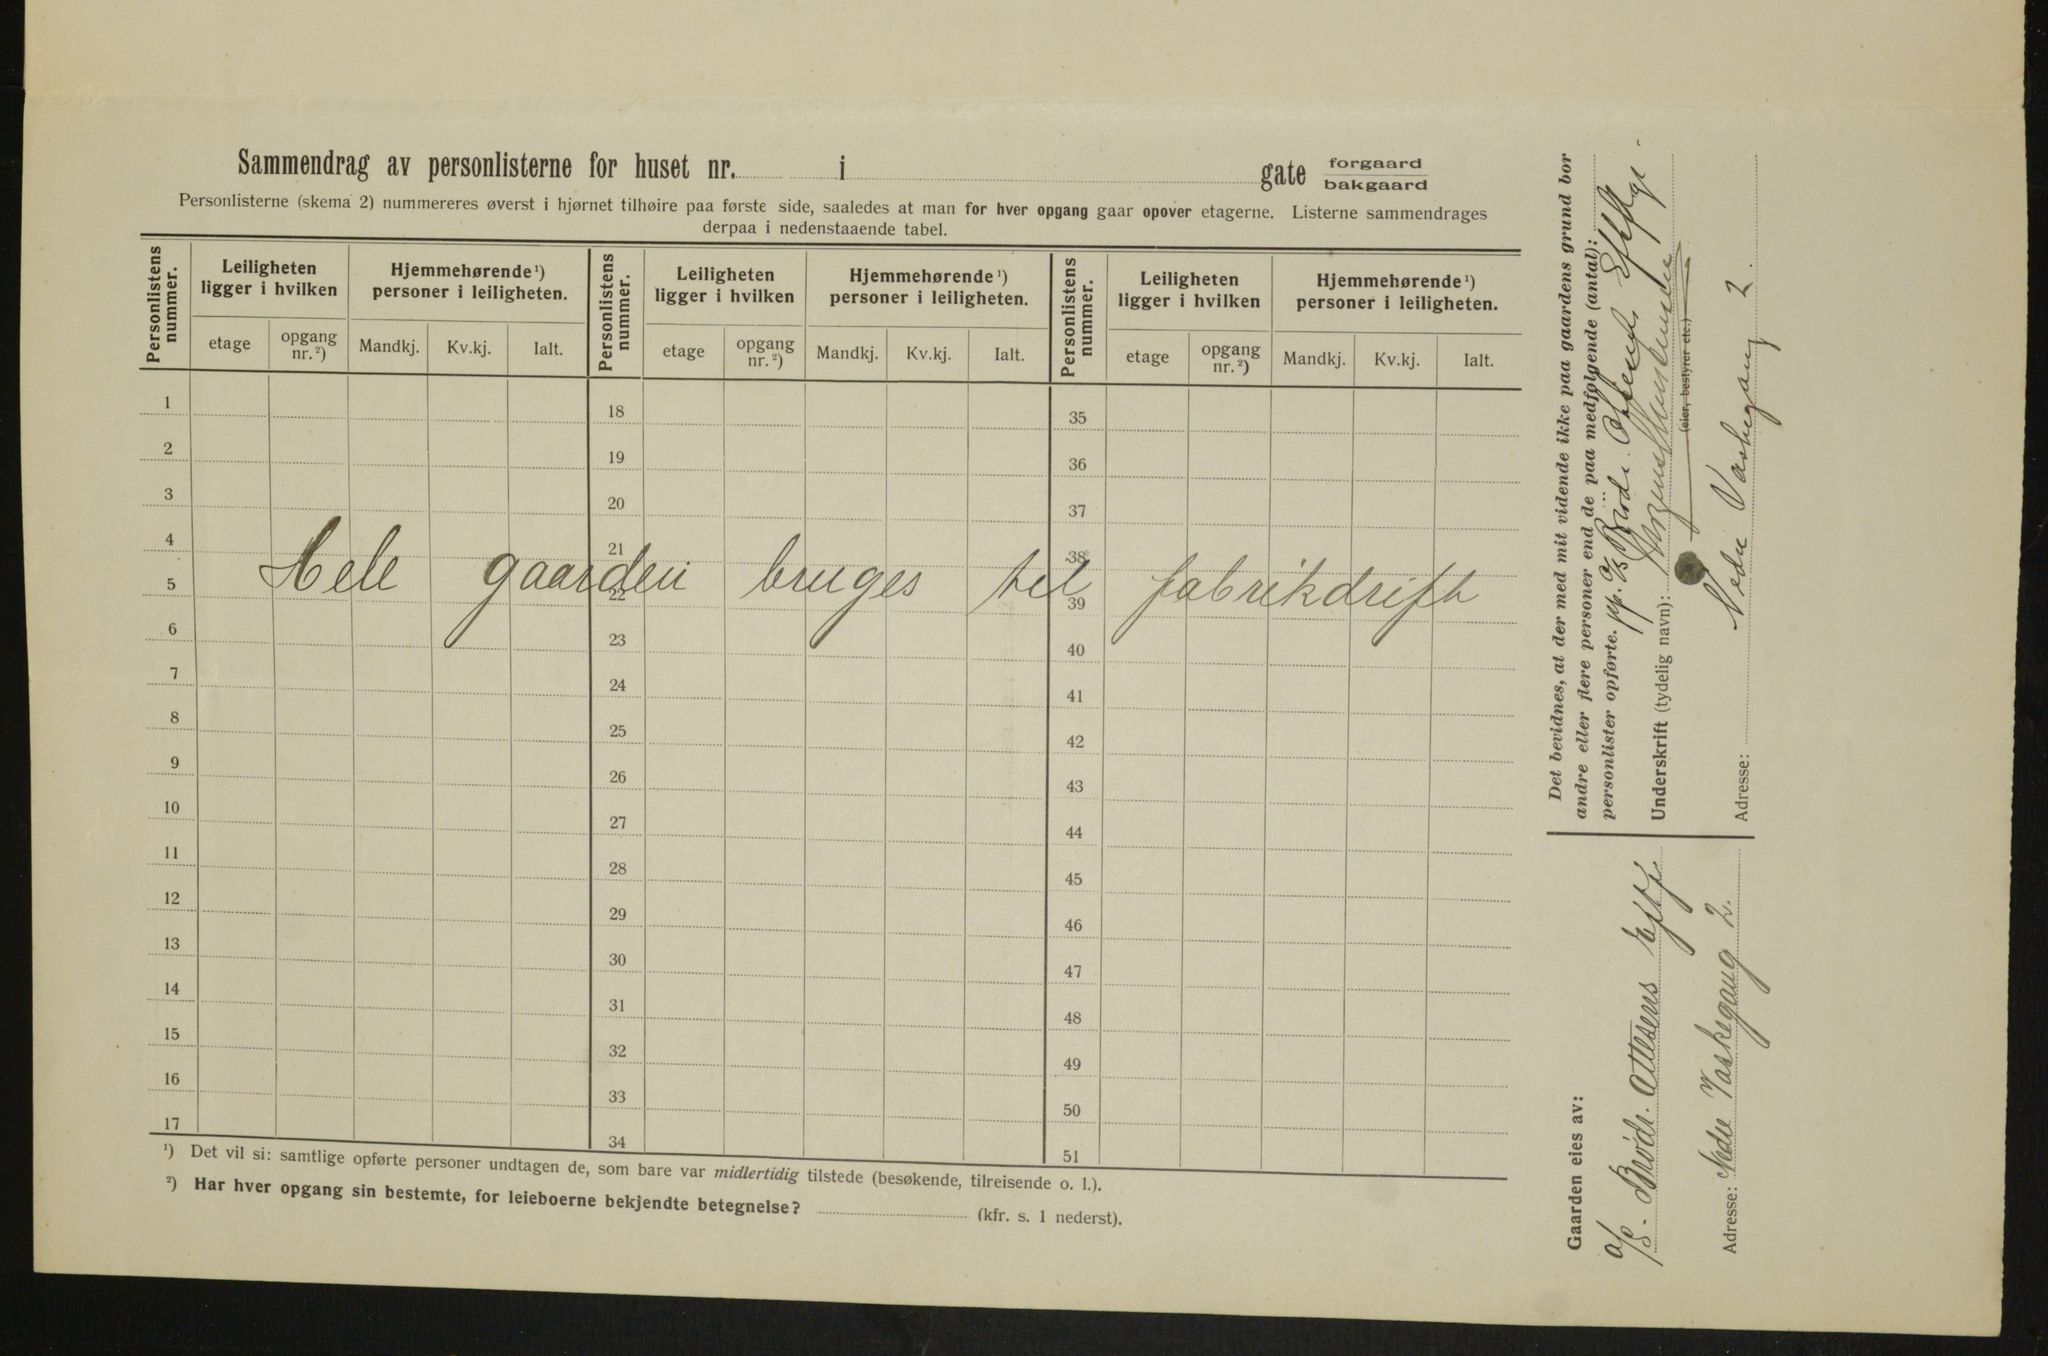 Sammendrag av personlisterne for huset nr. i gate forgaard
bakgaard
Personlisterne (skema 2) nummereres øverst i hjørnet tilhøire paa første side, saaledes at man for hver opgang gaar opover etagerne. Listerne sammendrages
derpaa i nedenstaaende tabel.
Personlistens nummer.
Leiligheten
ligger i hvilken
Hjemmehørende ¹)
personer i leiligheten.
etage
opgang
nr. ²)
Mandkj.
Kv.kj.
Ialt.
Personlistens nummer.
Leiligheten
ligger i hvilken
Hjemmehørende ¹)
personer i leiligheten.
etage
opgang
nr. ²)
Mandkj.
Kv.kj.
Ialt.
Personlistens nummer.
Leiligheten
ligger i hvilken
Hjemmehørende ¹)
personer i leiligheten.
etage
opgang
nr. ²)
Mandkj.
Kv.kj.
Ialt.
1 18 35
2 19 36
3 20 37
4 21 38
Hele gaarden bruges til fabrikdrift
5 22 39
6 23 40
7 24 41
8 25 42
9 26 43
10 27 44
11 28 45
12 29 46
13 30 47
14 31 48
15 32 49
16 33 50
17 34 51
¹) Det vil si: samtlige opførte personer undtagen de, som bare var midlertidig tilstede (besøkende, tilreisende o. l.).
²) Har hver opgang sin bestemte, for leieboerne bekjendte betegnelse? (kfr. s. 1 nederst).
Det bevidnes, at der med mit vidende ikke paa gaardens grund bor
andre eller flere personer end de paa medfølgende (antal):
personlister opførte. pp. A/S Brødr. Ottesens Eftflg.
Underskrift (tydelig navn):
(eier, bestyrer etc.)
Adresse: Nedre Vaskegang 2.
Gaarden eies av:
A/S. Brødr. Ottesens Eftf.
Adresse: Nedre Vaskegang 2.